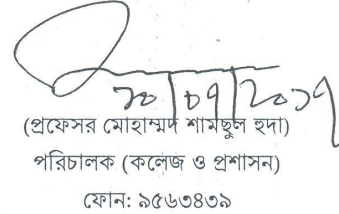 ২০/০৭/২০১৭
(প্রফেসর মোহাম্মদ শামছুল হুদা)
পরিচালক (কলেজ ও প্রশাসন)
ফোন: ৯৫৬৩৪৩৯